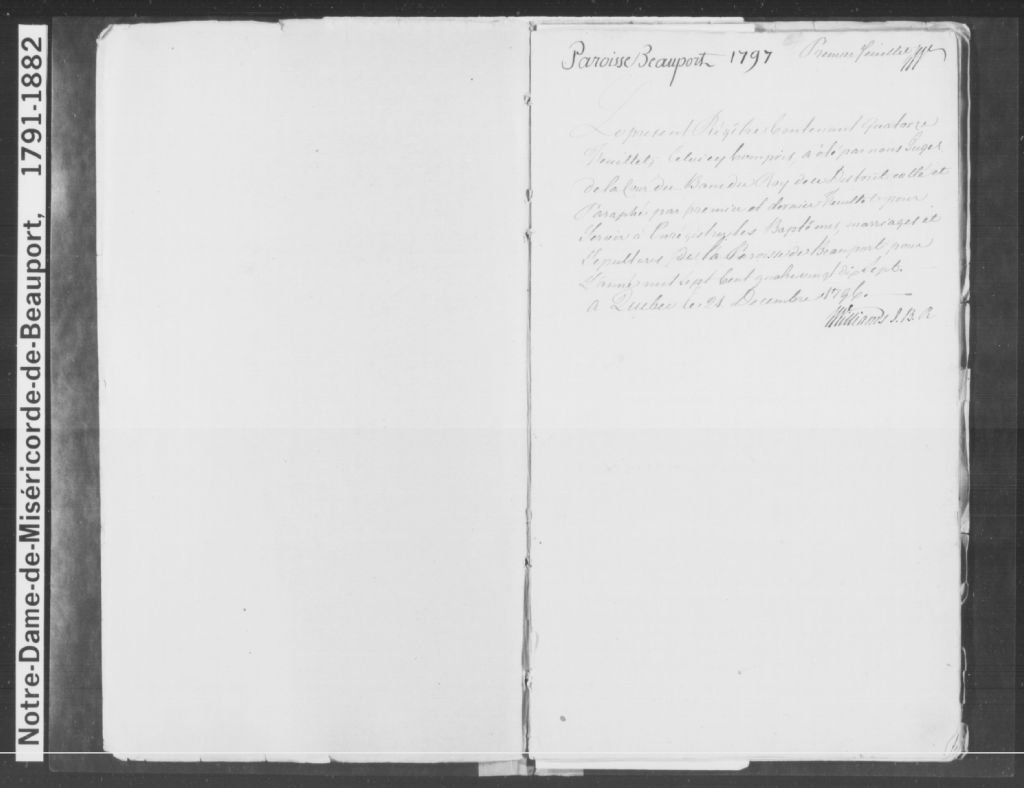 Notre-Dame-de-Miséricorde-de-Beauport, 1791-1882
Paroisse Beauport 1797
Premier feuillet
Le présent Régître Contenant Quatorze
feuillets Celui cy Compris a été par nous Juges
de la Cour du Banc du Roy de ce District cotté et
Paraphé par premier et dernier feuillet pour
Servir à Enrégistrer les Baptêmes, marriages et
Sepultures, de la Paroisse de Beauport pour
L'année mil sept Cent quatre vingt dix Sept.
a Quebec le 21 Decembre 1796.
Williams J. B. R